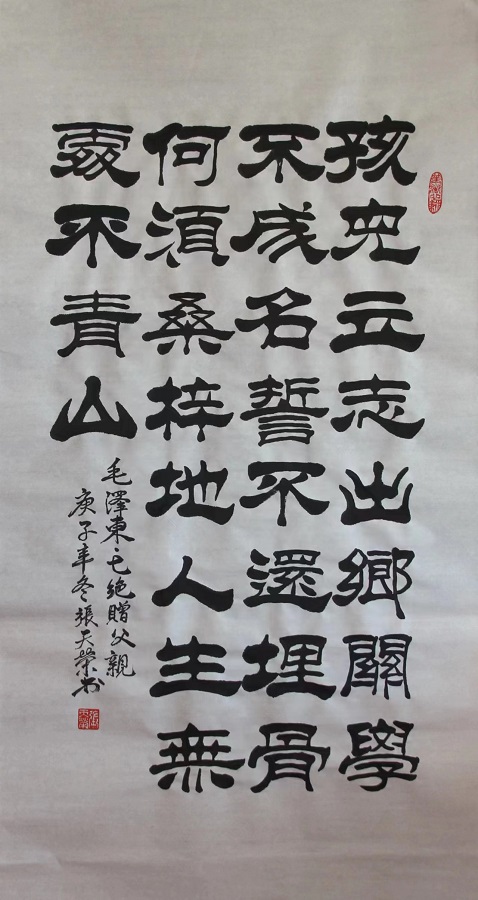 孩兒立志出鄉關學
不成名誓不還埋骨
何須桑梓地人生無
處不青山
毛澤東·七絕贈父親
庚子年冬張天榮书